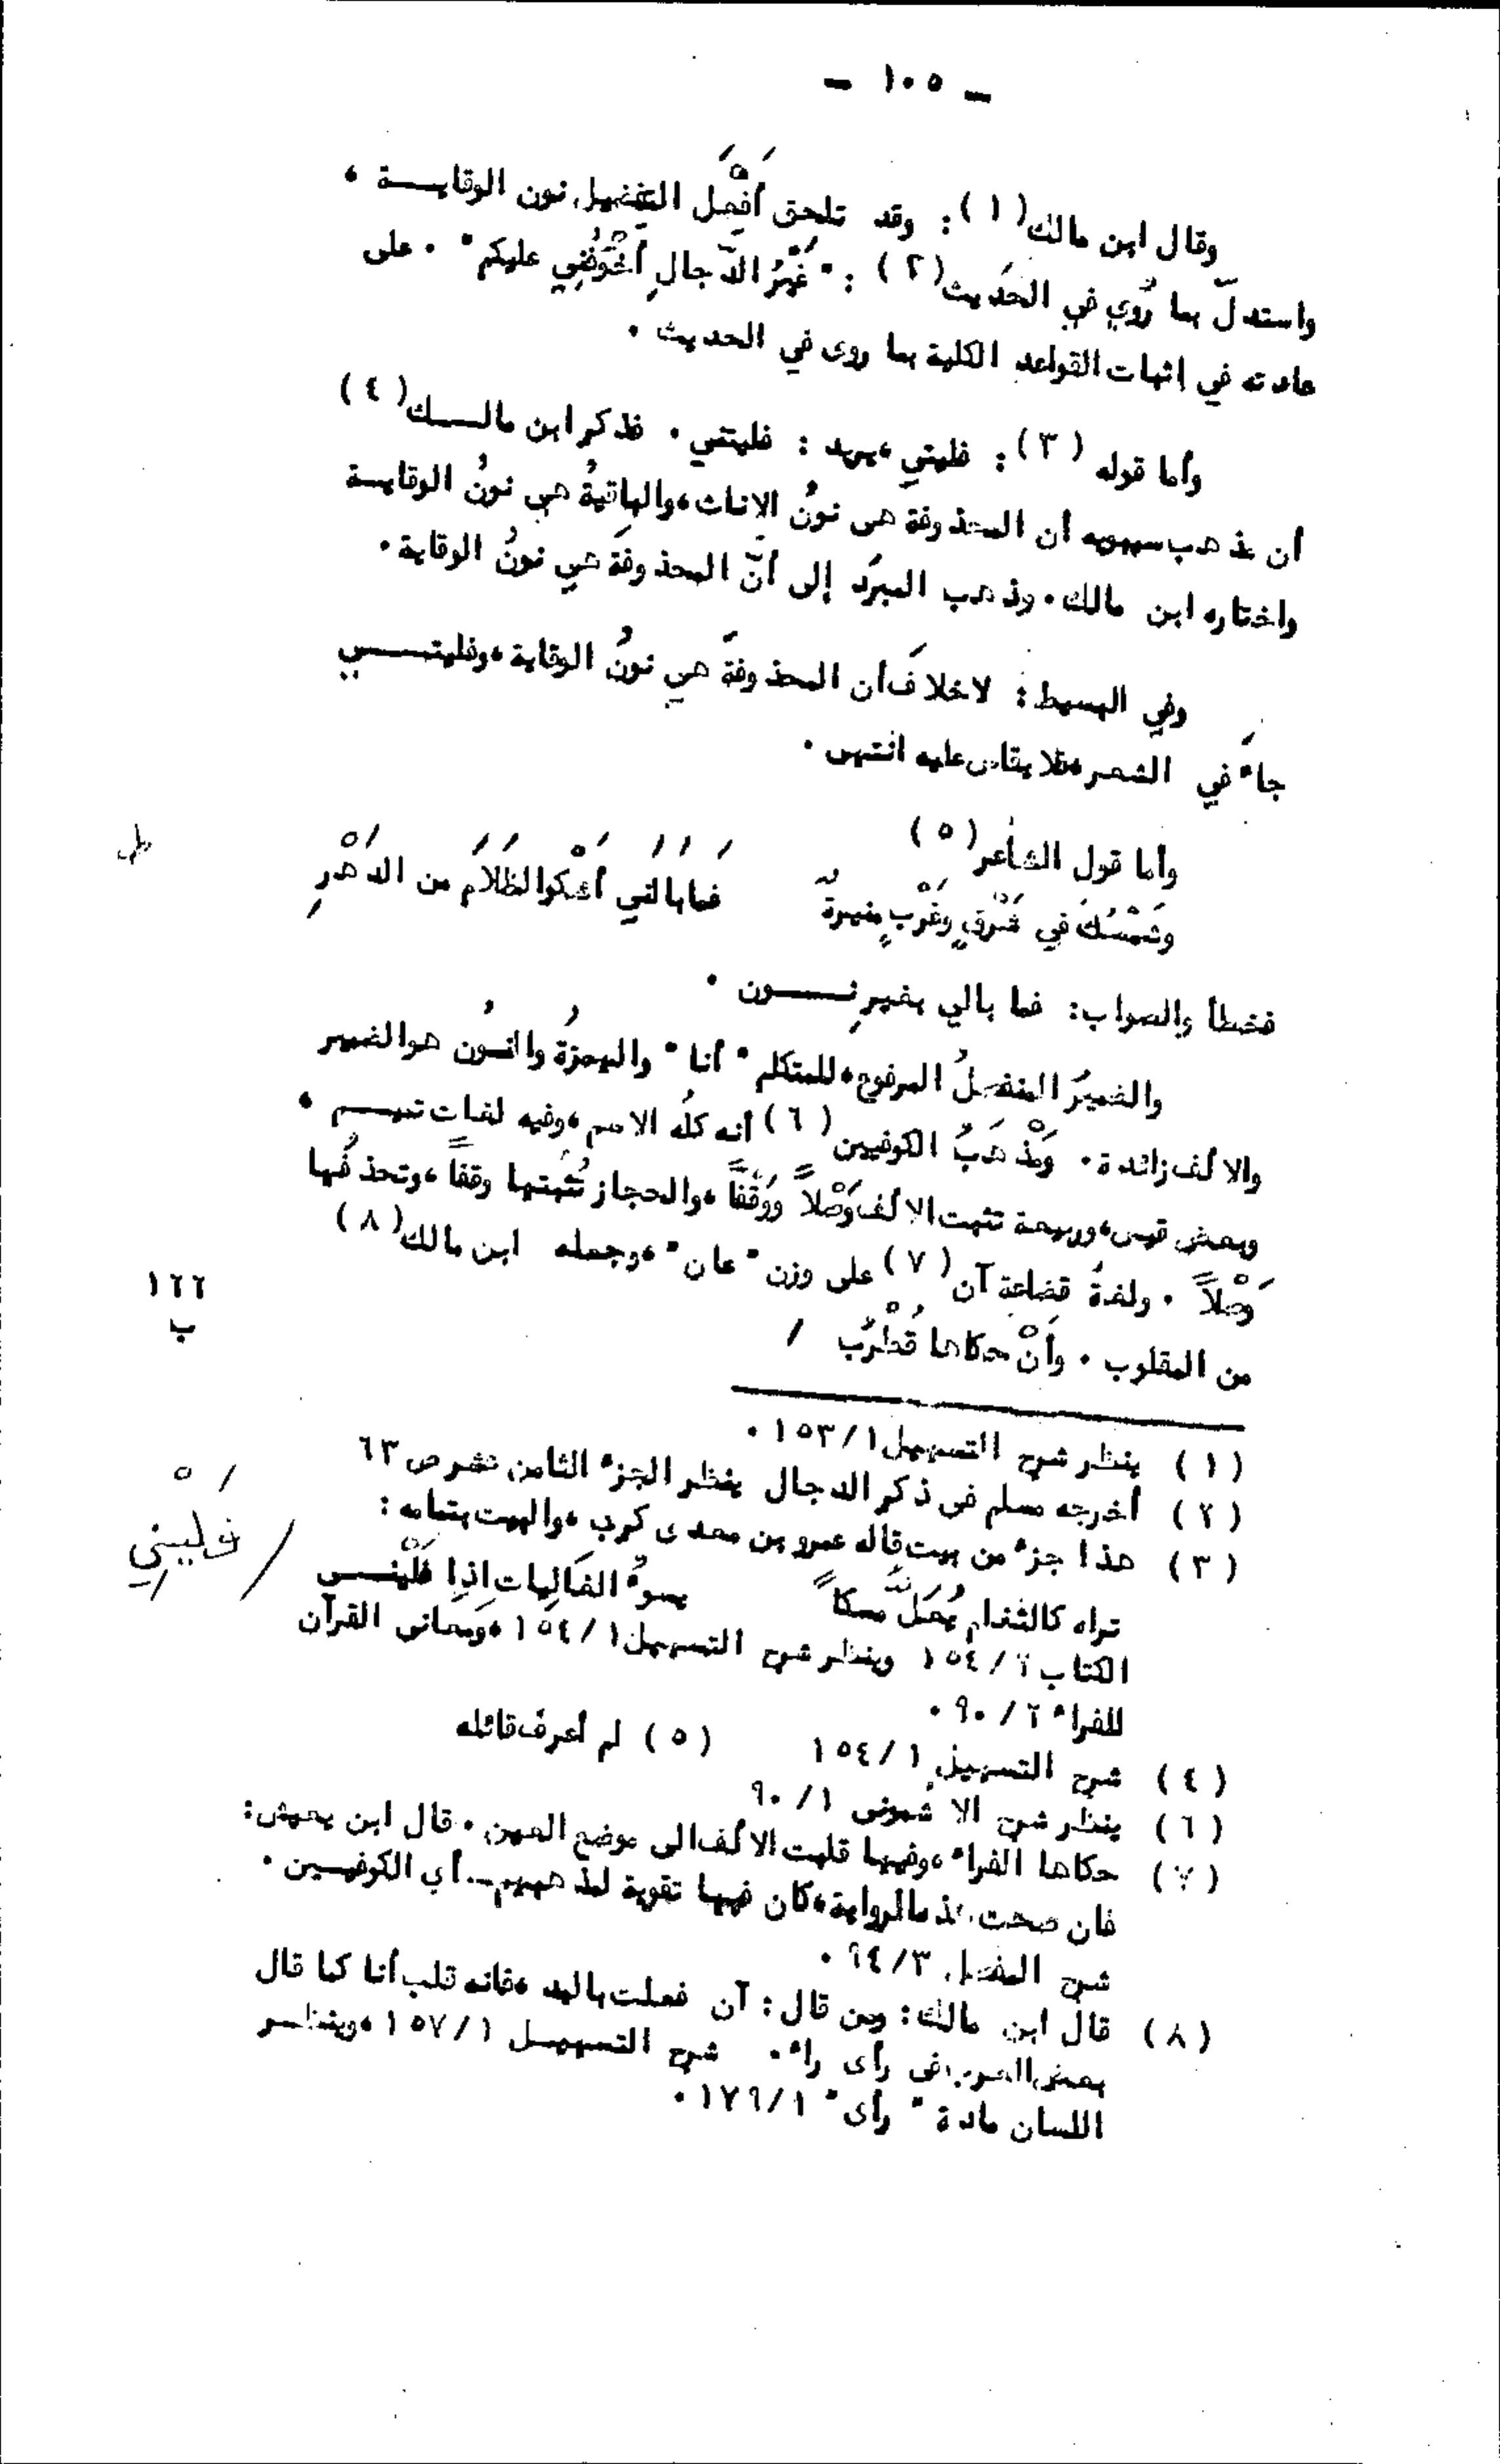 - ١٠٥ -
وقال ابن مالك (١) : وقد تلحق أَفْعَل التفضيل نون الوقايـــة ،
واستدلّ بما رُوي في الحَديث (٢) : " غَيْرُ الدَّجالِ أَخْوَفُنِي عليكم " . على
عادته في إثبات القواعد الكلية بما روى في الحديث .
وأما قوله (٣) : فليني ، يريد : فلينني . فذكر ابن مالـــك (٤)
أن مذهب سيبويه أن المحذوفة هى نونُ الاناث ، والباقيةُ هي نونُ الوقايـة
واختاره ابن مالك . وذهب المبرّد إلى أنّ المحذوفةَ هي نونُ الوقاية .
وفي البسيط : لاخلافَ أن المحذوفةَ هي نونُ الوقاية ، وفليتــــي
جاءَ في الشعر ، فلا يقاس عليه انتهى .
وأما قول الشاعر (٥)
وشَمْسُكَ في شَرْقٍ وغَرْبٍ منيرةٌ فَما بالَتي أَشْكو الظَلاَمَ من الدَهْرِ
فخطأ والصواب : فما بالي بغيرِ نــــون .
والضميرُ المنفصلُ المرفوع ، للمتكلم " أنا " والهمزةُ والنـونُ هو الضمير
والالف زائدة . ومَذْهَبُ الكوفيين (٦) أنه كلُه الاسم ، وفيه لغات تميـــم ،
وبعض قيس ، وربيعة تثبت الالف وَصْلاً ووَقْفاً ، والحجاز تُثبتها وقفاً ، وتحذفُها
وَصْلاً . ولغةُ قضاعة آن (٧) على وزن " عان " ، وجعله ابن مالك (٨)
من المقلوب . وأَنْ حكاها قُطْرُب /
١٦٦
ب
(١) ينظر شرح التسهيل ١/١٥٣ .
(٢) أخرجه مسلم فى ذكر الدجال ينظر الجزء الثامن عشر ص ٦٣
(٣) هذا جزء من بيت قاله عمرو بن معدى كرب ، والبيت بتمامه :
تراه كالثغام يُعَلُّ مسكاً يسوءُ الفَالِيات إذا فَلَيْنـــى
الكتاب ٢/١٥٤ وينظر شرح التسهيل ١/١٥٤ ، ومعانى القرآن
للفراء ٢/٩٠ .
(٤) شرح التسهيل ١/١٥٤ (٥) لم أعرف قائله
(٦) ينظر شرح الاشمونى ١/٩٠
(٧) حكاها الفراء ، وفيها قلبت الالف الى موضع العين . قال ابن يعيش :
فان صحت هذه الرواية ، كان فيها تقوية لمذهبهم _ أي الكوفيـين .
شرح المفصل ٣/٩٤ .
(٨) قال ابن مالك : ومن قال : آن فعلت بالمد ، فانه قلب أنا كما قال
بعض العرب فى رأى راء . شرح التسهيــل ١/١٥٧ ، وينظــر
اللسان مادة " رأى " ١/١٧٩ .
/ فَلَيْنِي